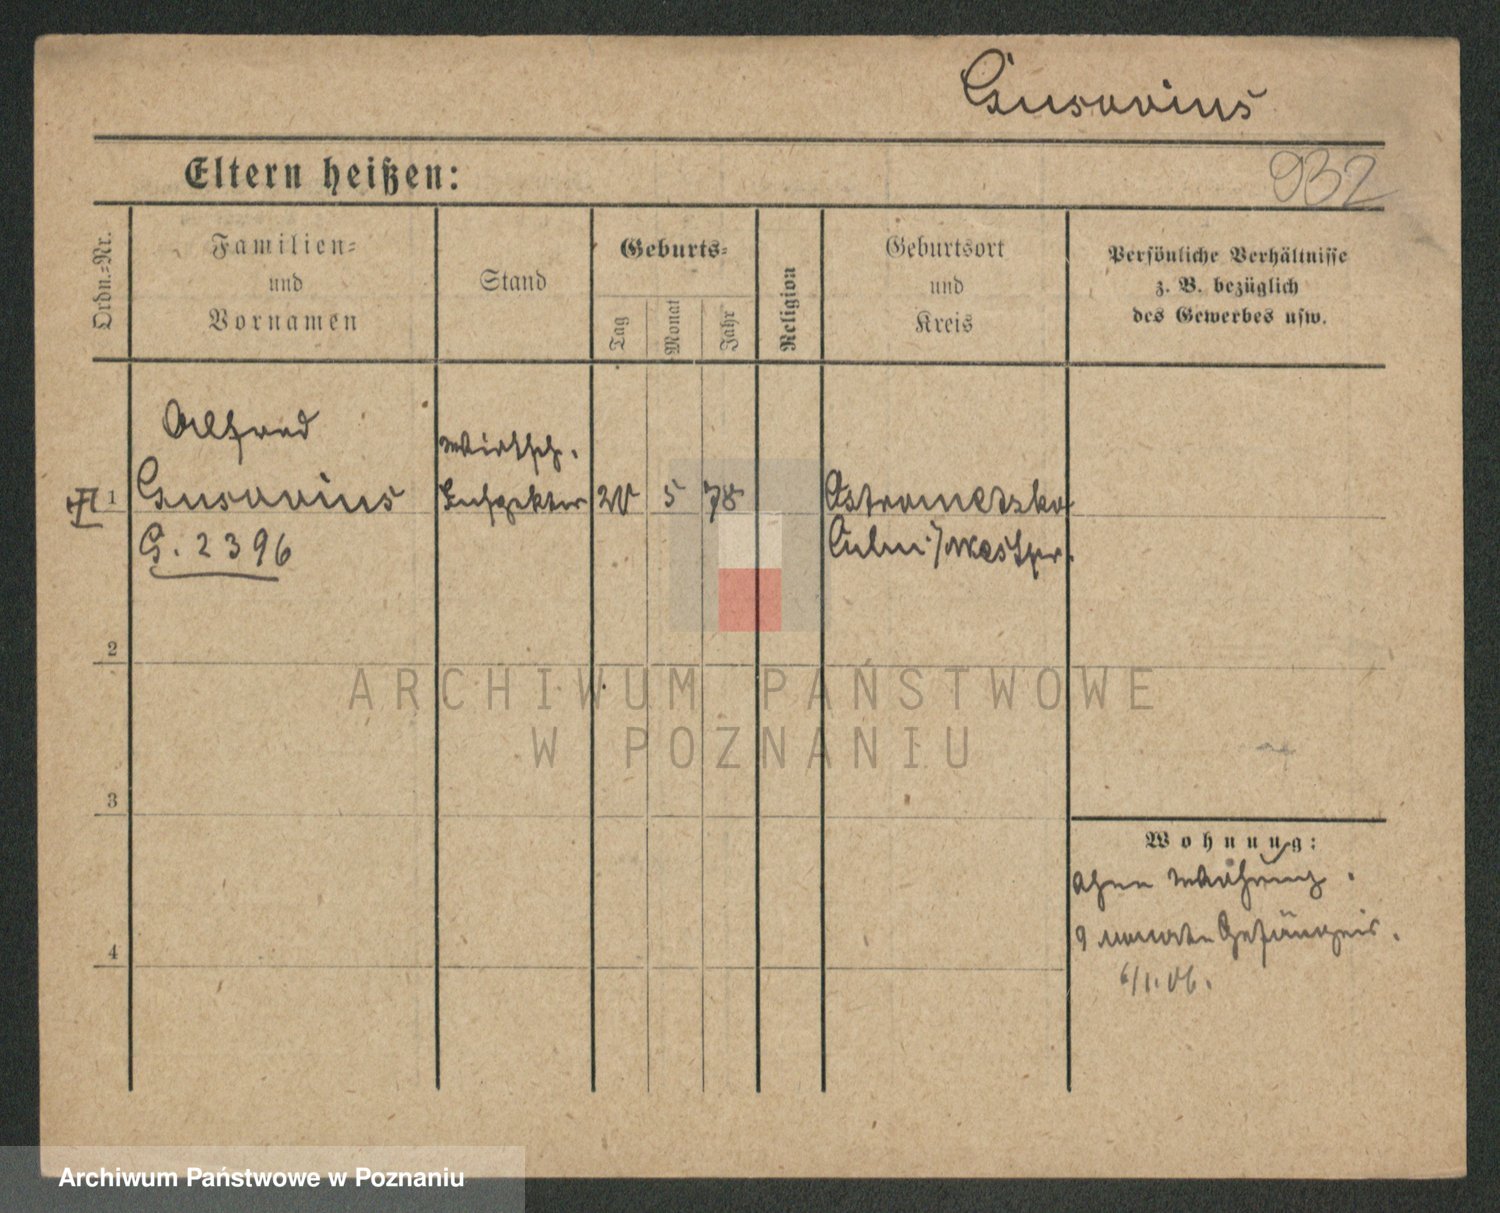 Gusovius
Eltern heißen:
932
Ordn.-Nr.
Familien-
und
Vornamen
Stand
Geburts-
Tag
Monat
Jahr
Religion
Geburtsort
und
Kreis
Persönliche Verhältnisse
z. B. bezüglich
des Gewerbes usw.
Alfred
Wirtsch.
1 Gusovius Inspektor 20 5 78 Ostrometzko
G. 2396 Culm i/Westpr.
2
3
Wohnung:
ohne Wohnung.
9 Monate Gefängnis.
4
6/1.06.
ARCHIWUM PAŃSTWOWE
W POZNANIU
Archiwum Państwowe w Poznaniu